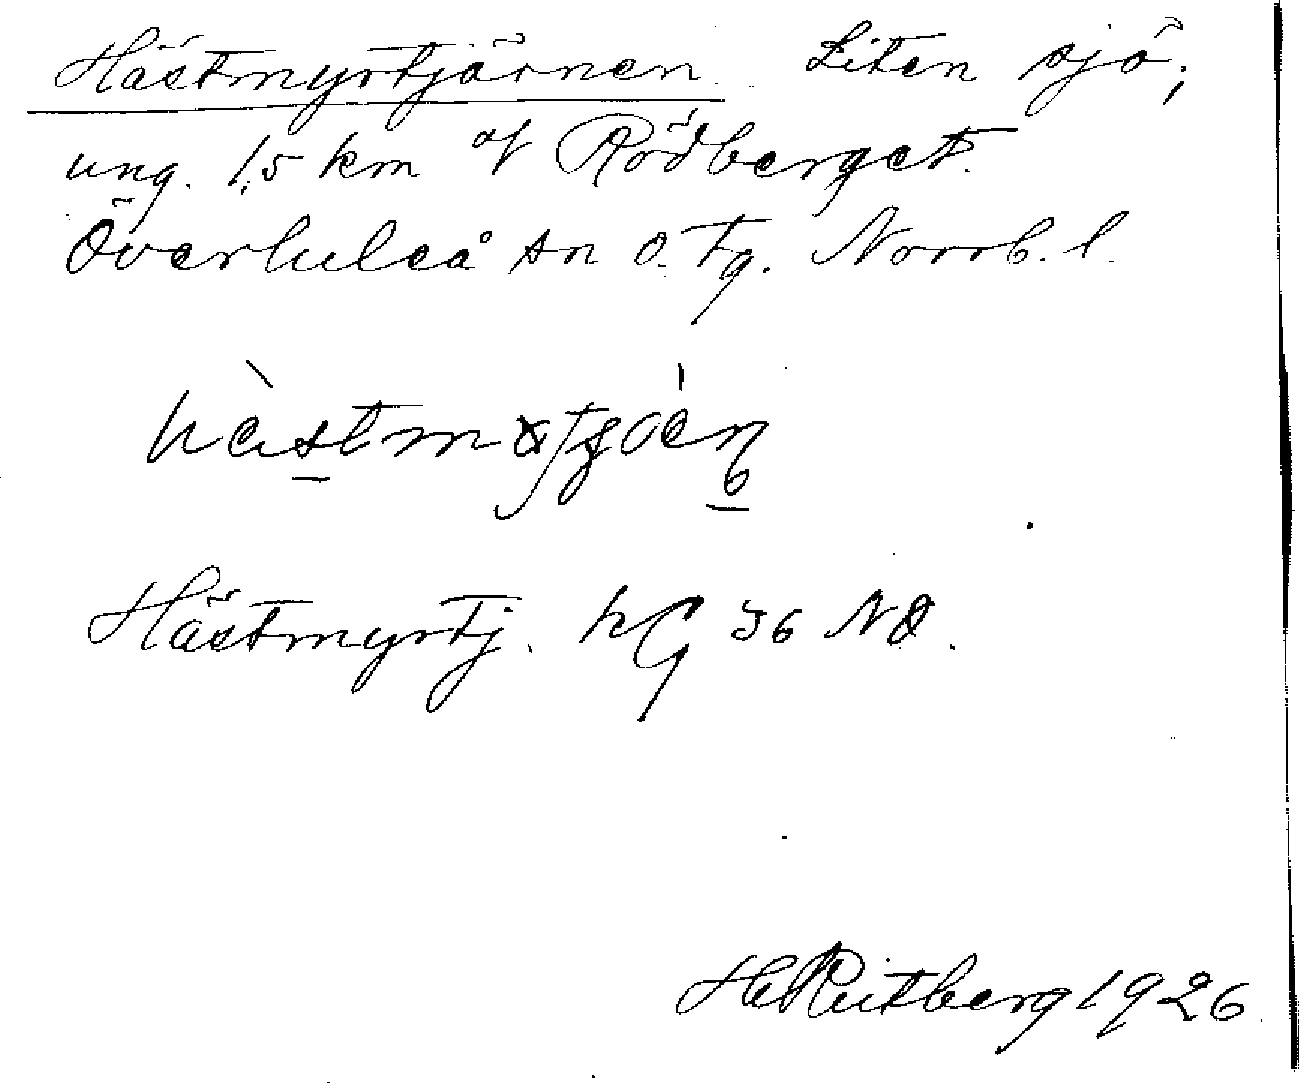 Hästmyrtjärnen Liten sjö,
ung. 1,5 km af Rödberget.
Överluleå sn Ö. Tg. Norrb. l.
Hästmyrtj. hG 36 NO.
H Rutberg 1926